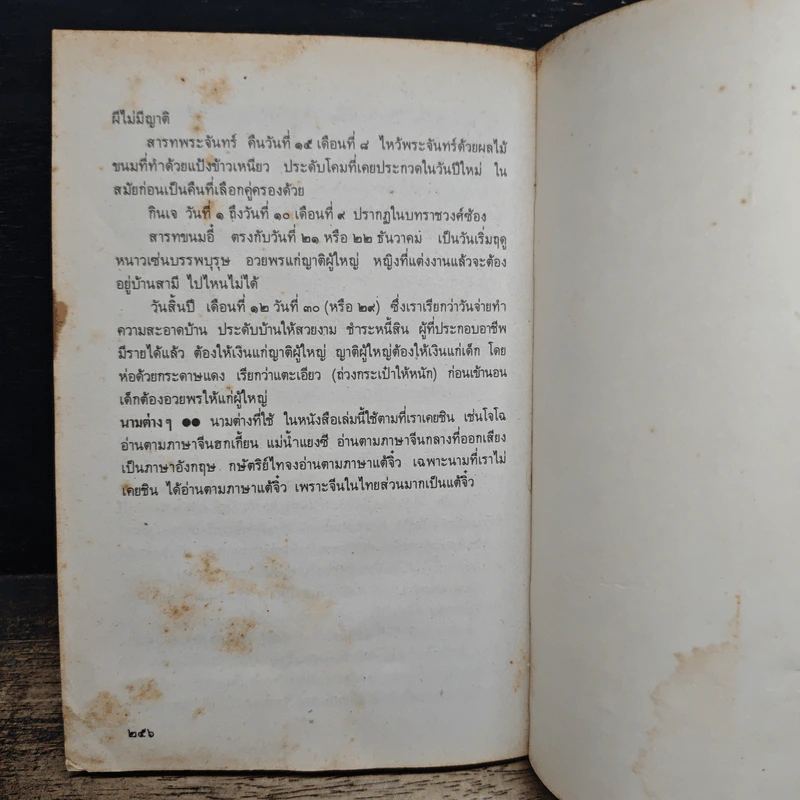 ผีไม่มีญาติ
สารทพระจันทร์ คืนวันที่ ๑๕ เดือนที่ ๘ ไหว้พระจันทร์ด้วยผลไม้
ขนมที่ทำด้วยแป้งข้าวเหนียว ประดับโคมที่เคยประกวดในวันปีใหม่ ใน
สมัยก่อนเป็นคืนที่เลือกคู่ครองด้วย
กินเจ วันที่ ๑ ถึงวันที่ ๑๐ เดือนที่ ๙ ปรากฏในบทราชวงศ์ซ้อง
สารทขนมอี๋ ตรงกับวันที่ ๒๑ หรือ ๒๒ ธันวาคม เป็นวันเริ่มฤดู
หนาวเซ่นบรรพบุรุษ อวยพรแก่ญาติผู้ใหญ่ หญิงที่แต่งงานแล้วจะต้อง
อยู่บ้านสามี ไปไหนไม่ได้
วันสิ้นปี เดือนที่ ๑๒ วันที่ ๓๐ (หรือ ๒๙) ซึ่งเราเรียกว่าวันจ่ายทำ
ความสะอาดบ้าน ประดับบ้านให้สวยงาม ชำระหนี้สิน ผู้ที่ประกอบอาชีพ
มีรายได้แล้ว ต้องให้เงินแก่ญาติผู้ใหญ่ ญาติผู้ใหญ่ต้องให้เงินแก่เด็ก โดย
ห่อด้วยกระดาษแดง เรียกว่าแตะเอียว (ถ่วงกระเป๋าให้หนัก) ก่อนเข้านอน
เด็กต้องอวยพรให้แก่ผู้ใหญ่
นามต่าง ๆ ●● นามต่างที่ใช้ ในหนังสือเล่มนี้ใช้ตามที่เราเคยชิน เช่นโจโฉ
อ่านตามภาษาจีนฮกเกี้ยน แม่น้ำแยงซี อ่านตามภาษาจีนกลางที่ออกเสียง
เป็นภาษาอังกฤษ กษัตริย์ไทจงอ่านตามภาษาแต้จิ๋ว เฉพาะนามที่เราไม่
เคยชิน ได้อ่านตามภาษาแต้จิ๋ว เพราะจีนในไทยส่วนมากเป็นแต้จิ๋ว
๒๕๖